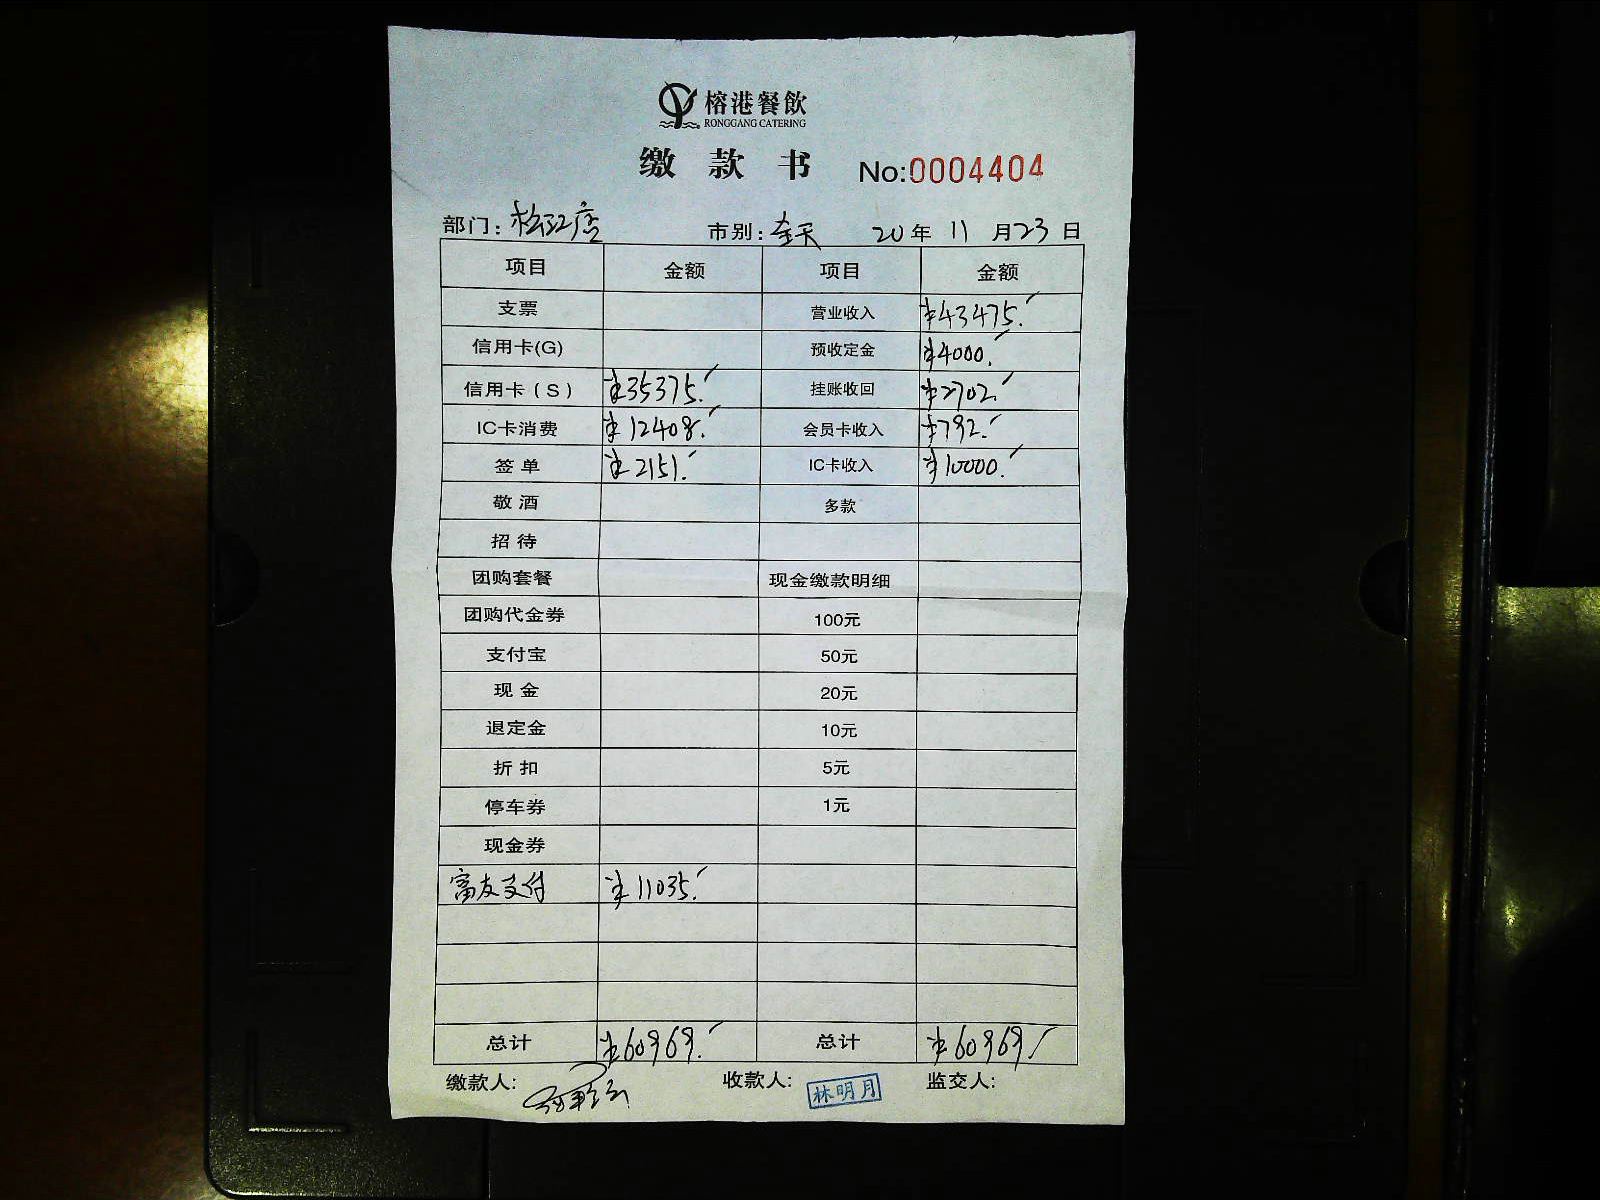 榕港餐飲
RONGGANG CATERING
缴款书 No:0004404
部门: 松江店 市别: 全天 20年 11月23日
项目 金额 项目 金额
支票 营业收入 ¥43475.
信用卡(G) 预收定金 ¥4000.
信用卡(S) ¥35375. 挂账收回 ¥2702.
IC卡消费 ¥12408. 会员卡收入 ¥792.
签单 ¥2151. IC卡收入 ¥10000.
敬酒 多款
招待
团购套餐 现金缴款明细
团购代金券 100元
支付宝 50元
现金 20元
退定金 10元
折扣 5元
停车券 1元
现金券
富友支付 ¥11035.
总计 ¥60969. 总计 ¥60969.
缴款人: 收款人: 林明月 监交人: